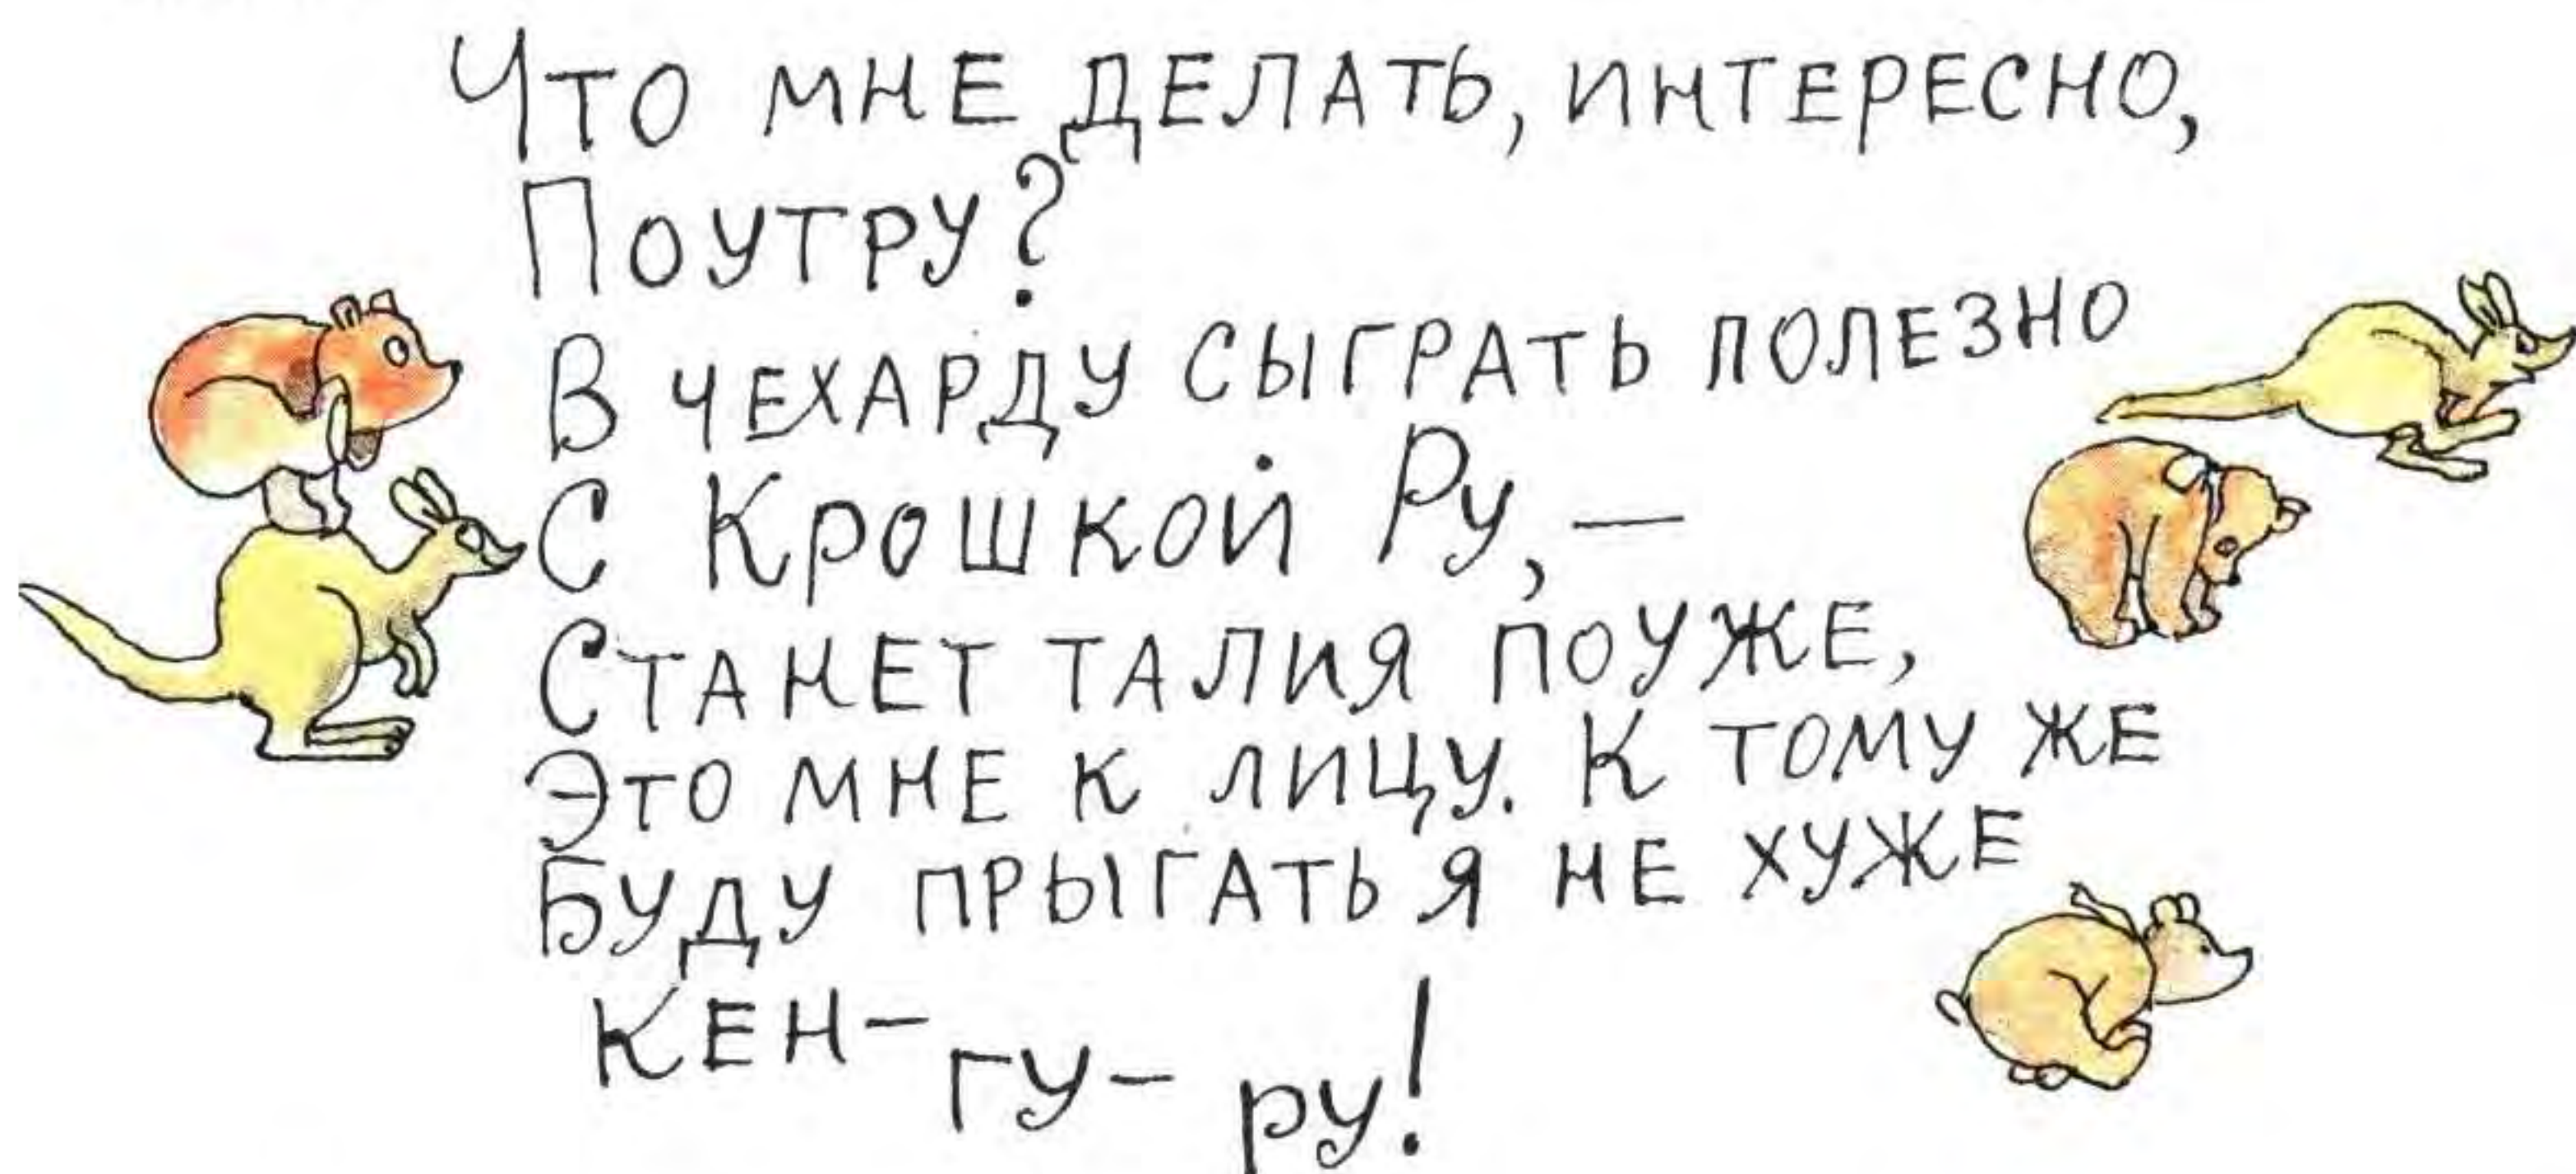 Что мне делать, интересно,
Поутру?
В чехарду сыграть полезно
С Крошкой Ру,—
Станет талия поуже,
Это мне к лицу. К тому же
Буду прыгать я не хуже
Кен-гу-ру!